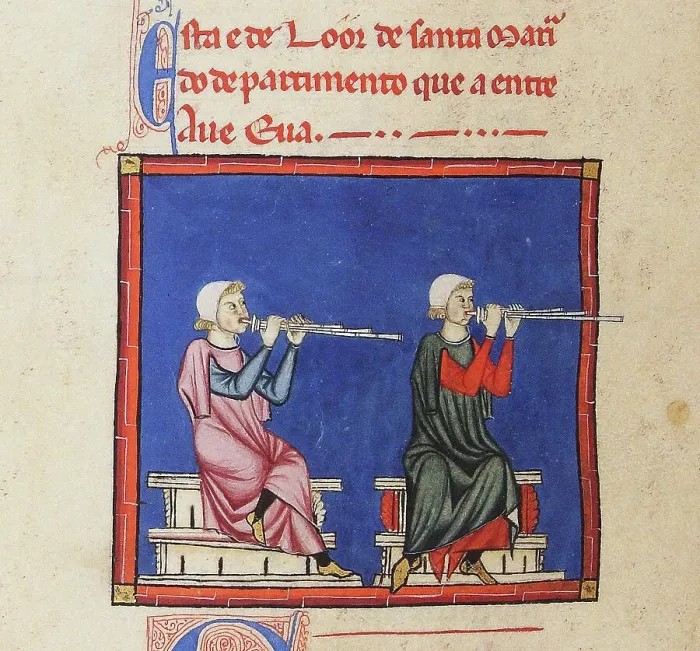 Esta e de Loor de santa Mari
do departimento que a entre
Aue Eua.